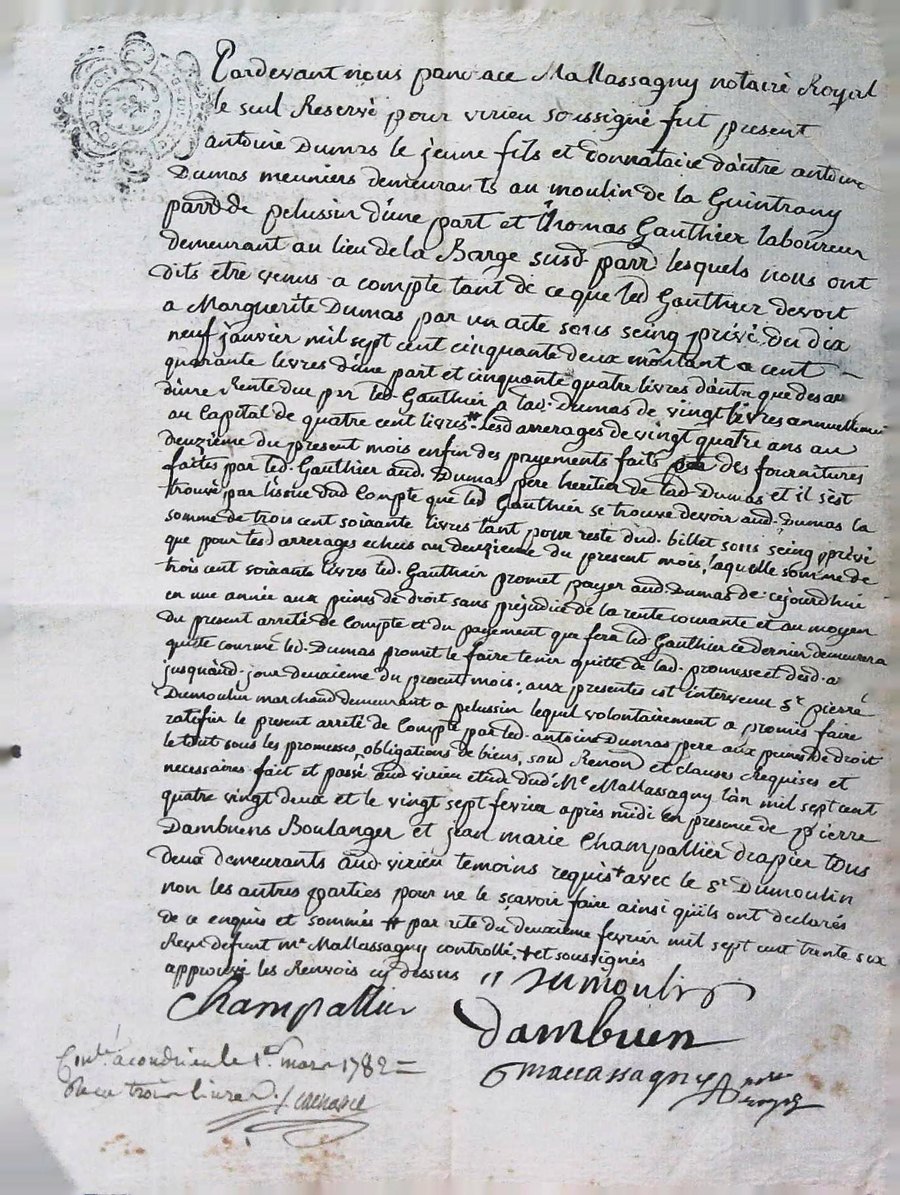 Pardevant nous pancrace Mallassagny notaire Royal
le seul Reservé pour virieu soussigné fut present
antoine Dumas le jeune fils et Donnataire d'autre antoine
Dumas meuniers demeurants au moulin de la Guintrany
parr de pelussin d'une part et Thomas Gauthier laboureur
demeurant au lieu de la Barge susd. parr lesquels nous ont
dits etre venus a compte tant de ce que led Gauthier devoit
a Marguerite Dumas par un acte sous seing privé du dix
neuf janvier mil sept cent cinquante deux montant a cent
quarante livres d'une part et cinquante quatre livres d'autre que des ar
d'une Rente due par led. Gauthier a lad. Dumas de vingt livres annuellement
au Capital de quatre cent livres # Lesd arrerages de vingt quatre ans au
deuzieme du present mois enfin des payements faits des fournitures
faites par led. Gauthier aud. Dumas pere heritier de lad. Dumas et il s'est
trouvé par l'issue dud Compte que led Gauthier se trouve devoir aud. Dumas la
somme de trois cent soixante livres tant pour reste dud. billet sous seing privé
que pour lesd arrerages echus au deuzieme du present mois, laquelle somme de
trois cent soixante livres led. Gauthair promet payer aud. Dumas de cejourdhui
en une année aux peines de droit sans prejudice de la rente courante et au moyen
du present arreté de Compte et du payement que fera led. Gauthier ce dernier demeurera
quitte comme led. Dumas promet le faire tenir quitte de lad. promesse et desd. a
jusquaud. jour deuzieme du present mois. aux presentes est intervenu Sr pierre
Dumoulin marchand demeurant a pelussin lequel volontairement a promis faire
ratifier le present arreté de Compte par led. antoine Dumas pere aux peines de droit
le tout sous les promesses, obligations de biens, soud Renon et clauses Requises et
necessaires fait et passé aud virieu etude dud. Me Mallassagny l'an mil sept cent
quatre vingt deux et le vingt sept fevrier après midi en presence de pierre
Dambuens Boulanger et jean marie Champallier drapier tous
deux demeurants aud. virieu temoins requis + avec le Sr Dumoulin
non les autres parties pour ne le scavoir faire ainsi qu'ils ont declarés
de ce enquis et sommés # par acte du deuzieme fevrier mil sept cent trente six
Reçu defunt me Mallassagny controllé. + et soussignés
approuvé les Renvois cy dessus // Dumoulin
Champallier
Dambuen
Mallassagny notre
royal
Contlé a condrieu le 1er mars 1782 =
Reçu trois livres